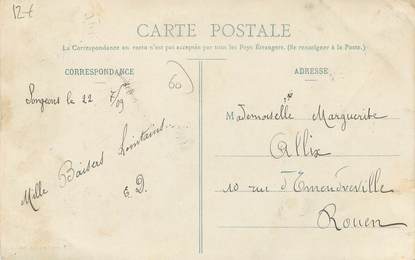 12€
CARTE POSTALE
La Correspondance au recto n'est pas acceptée par tous les Pays Étrangers. (Se renseigner à la Poste.)
CORRESPONDANCE
60
Songeons le 22 7/09
Mille Baisers Lointains...
E D.
ADRESSE
Mademoiselle Marguerite
Allix
10 rue d'Ernemdreville
Rouen